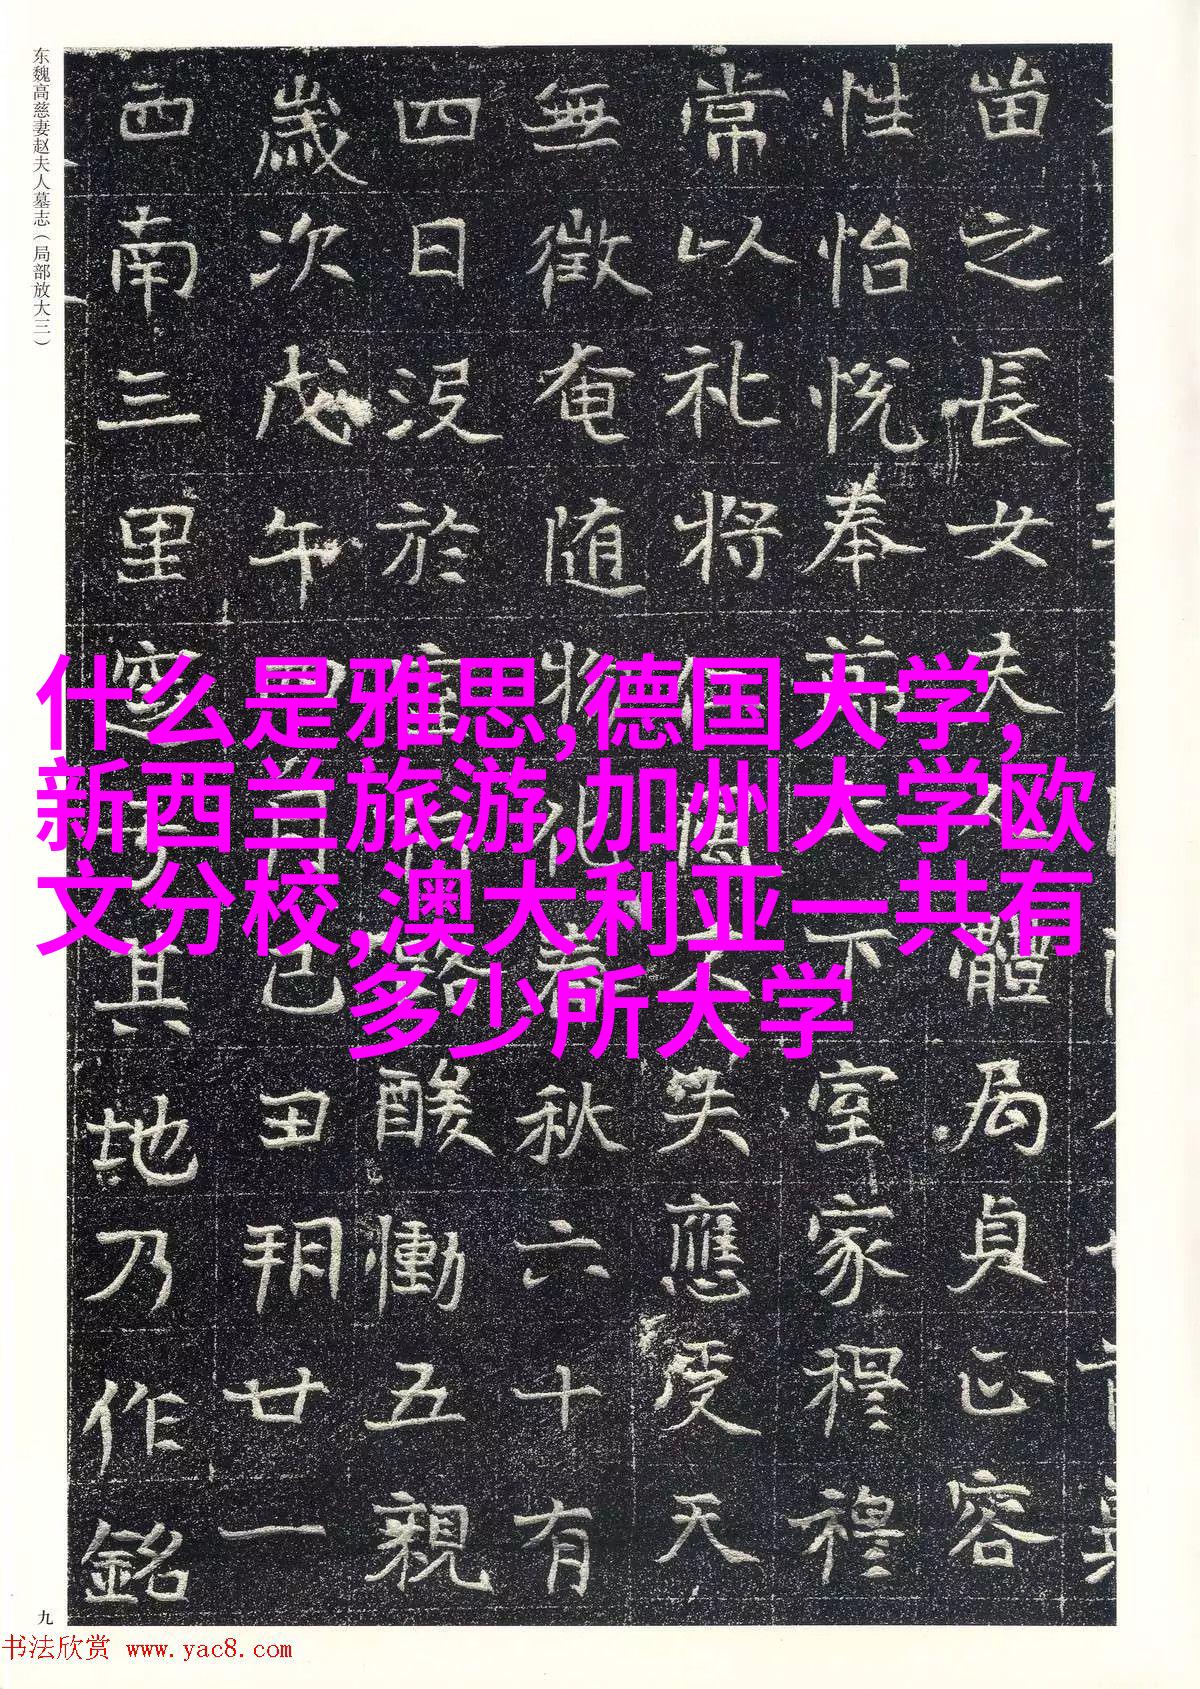 东魏高慈妻赵夫人墓志（局部放大三）
之長女夫人體局貞正容
性怡悅奉上下室家穆穆
常以礼将失應受天
無徵奄随物化春秋六十有
四日没於行路酸慟五親
歲次戊午四月己丑朔廿一
西南三里窆于其地乃作銘
什么是雅思,德国大学,
新西兰旅游,加州大学欧
文分校,澳大利亚一共有
多少所大学
九
书法欣赏 www.yac8.com